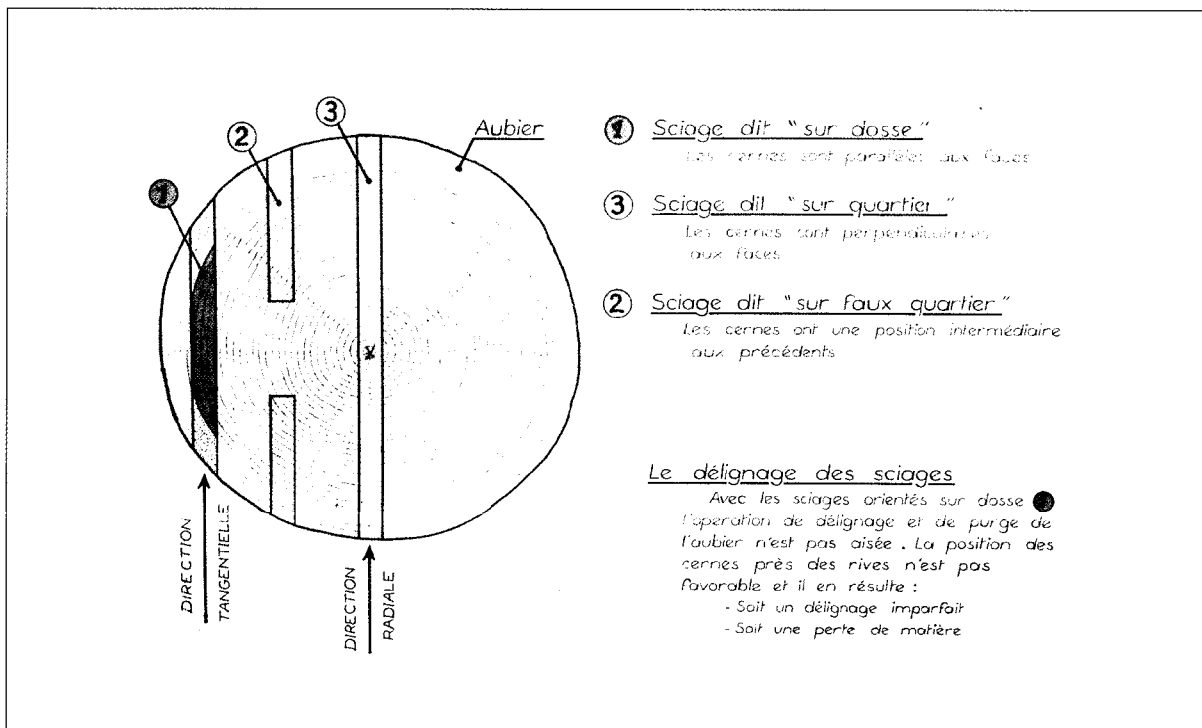 3
2
1
Aubier
DIRECTION
TANGENTIELLE
DIRECTION
RADIALE
1 Sciage dit "sur dosse"
Les cernes sont parallèles aux faces
3 Sciage dit "sur quartier"
Les cernes sont perpendiculaires
aux faces
2 Sciage dit "sur faux quartier"
Les cernes ont une position intermédiaire
aux précédents
Le délignage des sciages
Avec les sciages orientés sur dosse
l'operation de délignage et de purge de
l'aubier n'est pas aisée. La position des
cernes près des rives n'est pas
favorable et il en résulte :
- Soit un délignage imparfait
- Soit une perte de matière